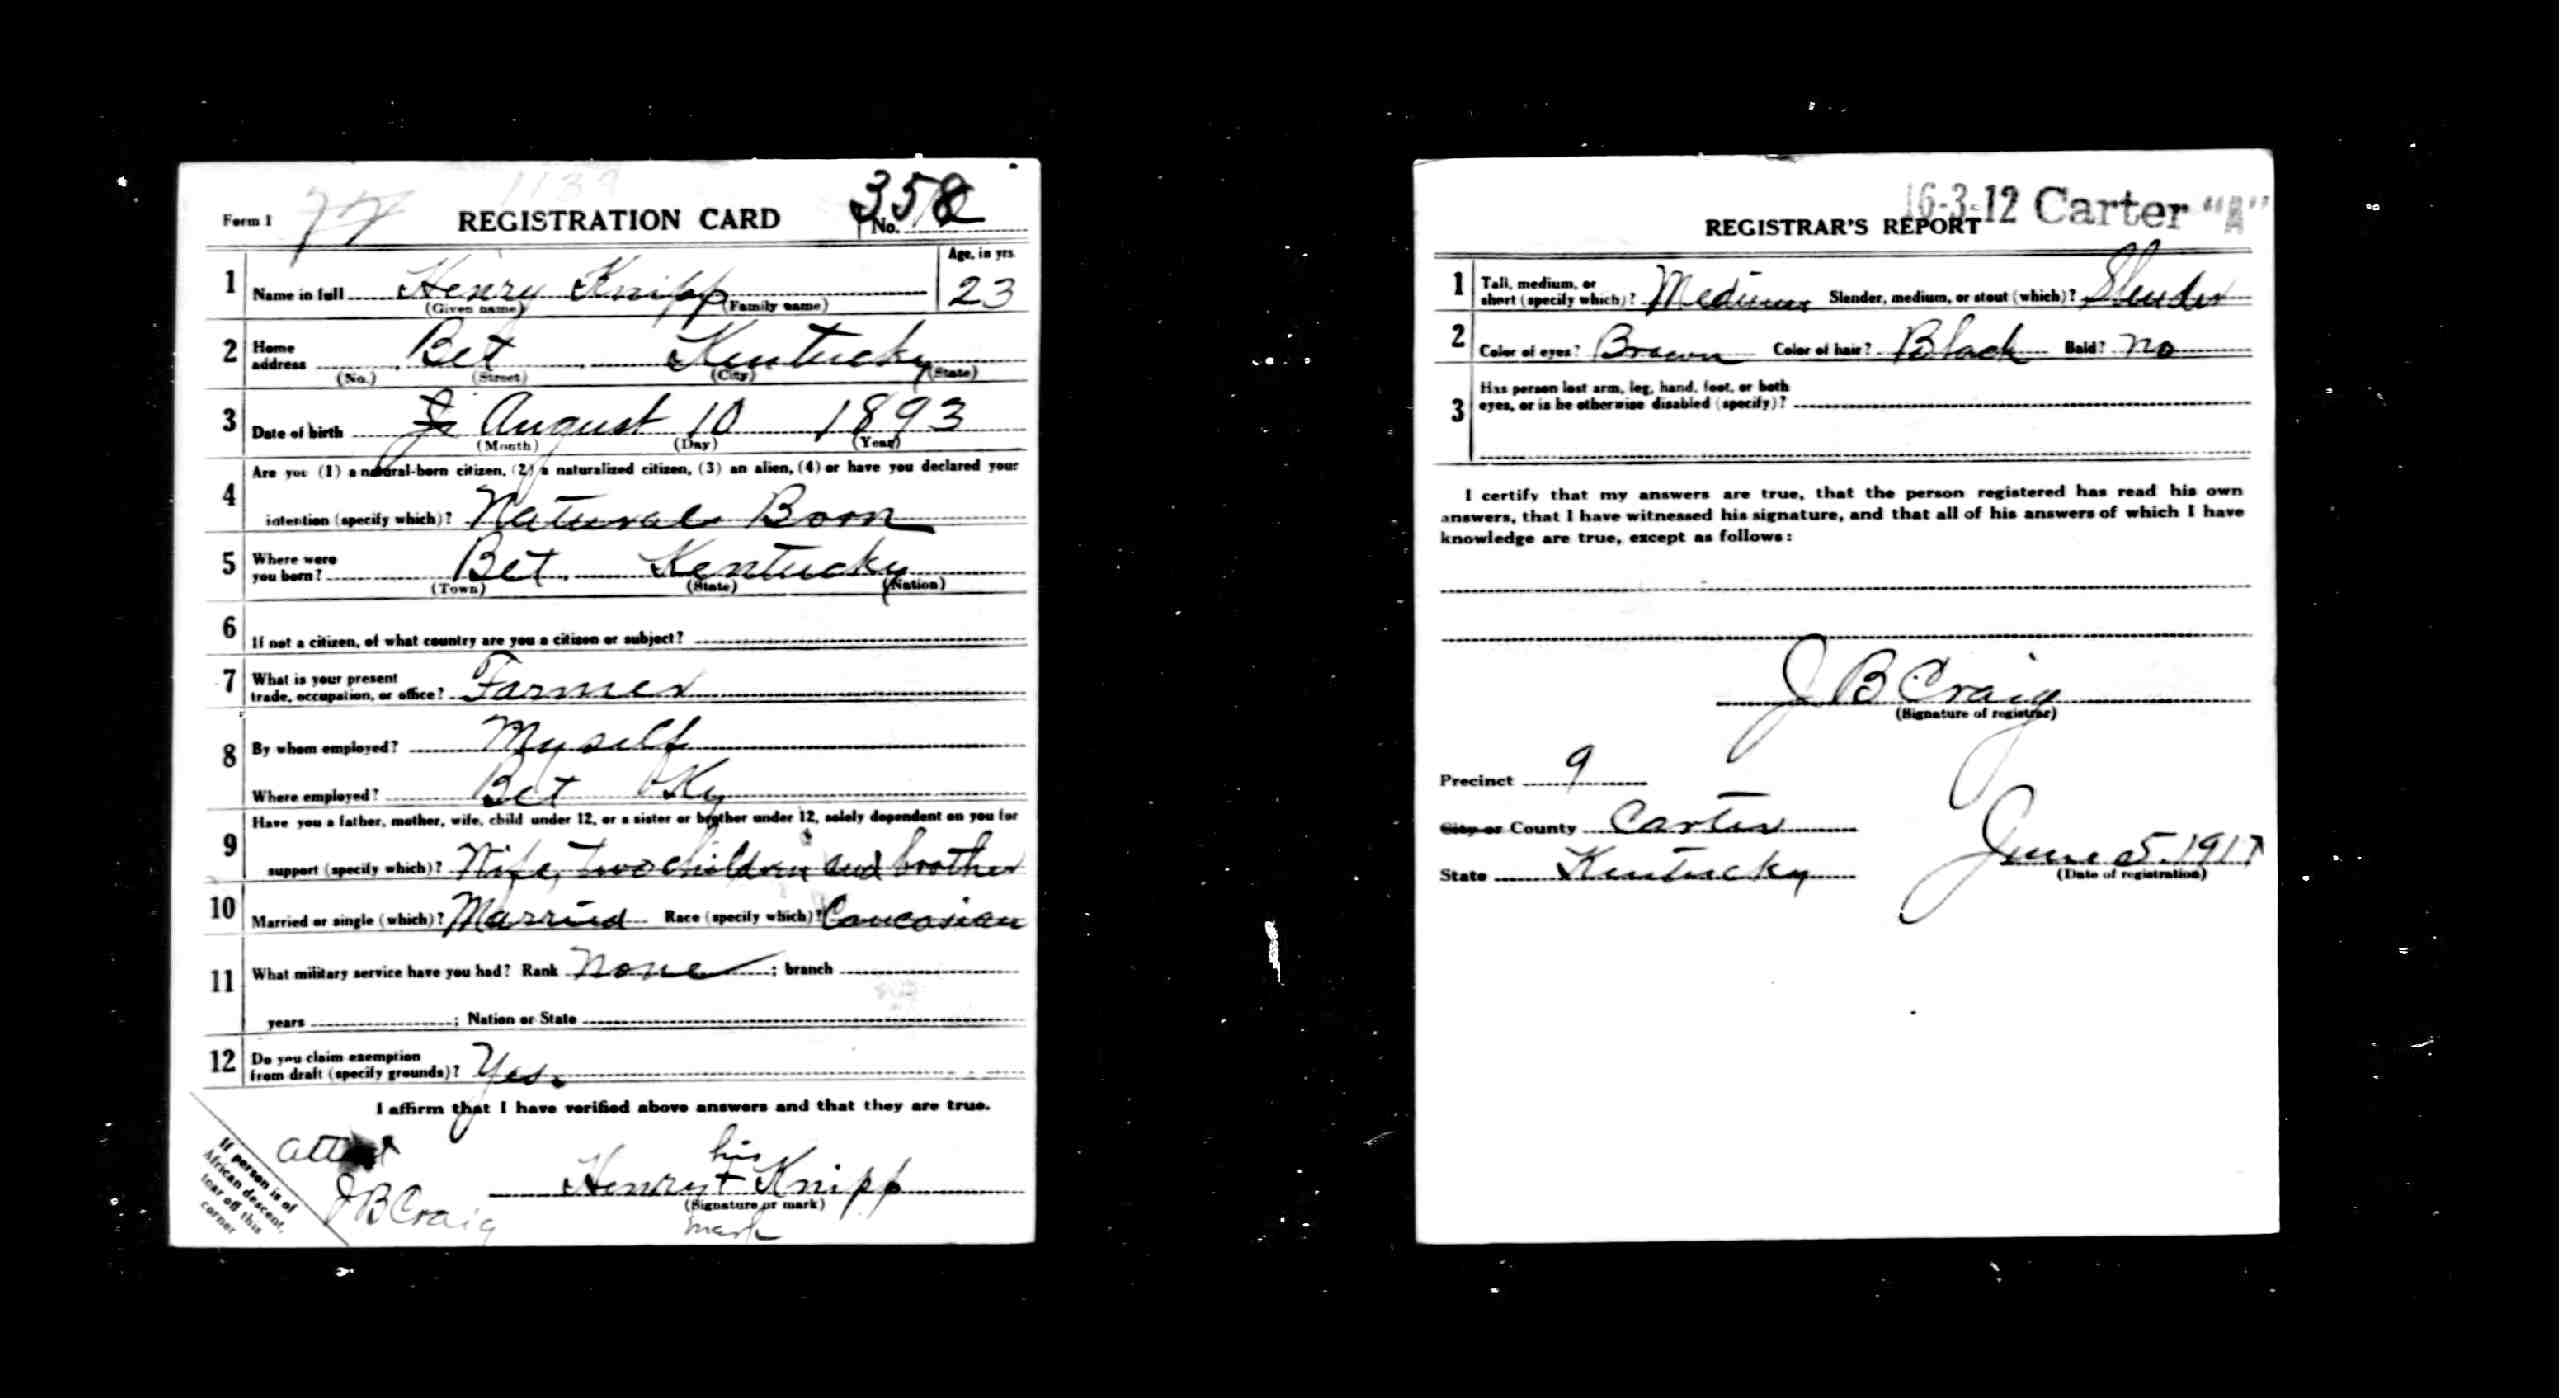 Form 1 REGISTRATION CARD No. 358
1 Name in full Henry Knipp Age, in yrs. 23
(Given name) (Family name)
2 Home address Bet Kentucky
(No.) (Street) (City) (State)
3 Date of birth August 10 1893
(Month) (Day) (Year)
4 Are you (1) a natural-born citizen, (2) a naturalized citizen, (3) an alien, (4) or have you declared your
intention (specify which)? Natural Born
5 Where were you born? Bet Kentucky
(Town) (State) (Nation)
6 If not a citizen, of what country are you a citizen or subject?
7 What is your present
trade, occupation, or office? Farmer
8 By whom employed? Myself
Where employed? Bet Ky
9 Have you a father, mother, wife, child under 12, or a sister or brother under 12, solely dependent on you for
support (specify which)? Wife, two children and brother
10 Married or single (which)? Married Race (specify which)? Caucasian
11 What military service have you had? Rank None ; branch
years ; Nation or State
12 Do you claim exemption
from draft (specify grounds)? Yes.
I affirm that I have verified above answers and that they are true.
attest his
Henry + Knipp
(Signature or mark)
J B Craig mark
If person is of
African descent,
tear off this
corner
16-3-12 Carter "A"
REGISTRAR'S REPORT
1 Tall, medium, or
short (specify which)? Medium Slender, medium, or stout (which)? Slender
2 Color of eyes? Brown Color of hair? Black Bald? No
3 Has person lost arm, leg, hand, foot, or both
eyes, or is he otherwise disabled (specify)?
I certify that my answers are true, that the person registered has read his own
answers, that I have witnessed his signature, and that all of his answers of which I have
knowledge are true, except as follows:
J B Craig
(Signature of registrar)
Precinct 9
City or County Carter
State Kentucky June 5. 1917
(Date of registration)